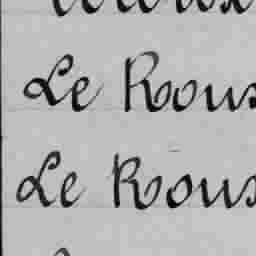 Le Rous
Le Rous